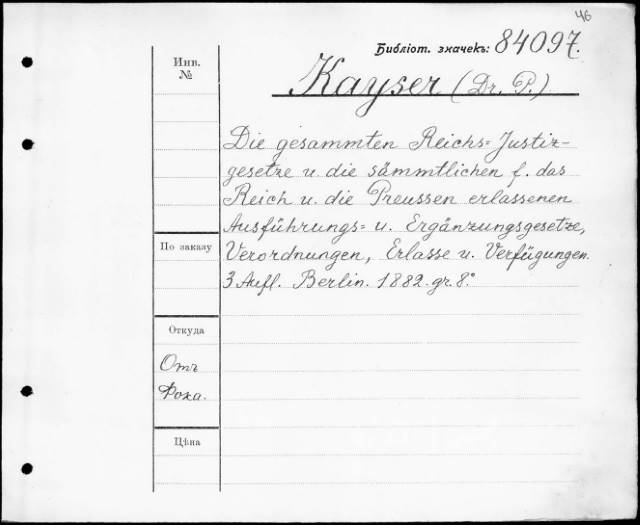 46
Библіот. значекъ: 84097.
Инв.
№
Kayser (Dr. P.)
Die gesammten Reichs=Justiz-
gesetze u. die sämmtlichen f. das
Reich u. die Preussen erlassenen
Ausführungs= u. Ergänzungsgesetze,
По заказу
Verordnungen, Erlasse u. Verfügungen.
3 Aufl. Berlin. 1882. gr. 8.°
Откуда
Отъ
Фока.
Цѣна